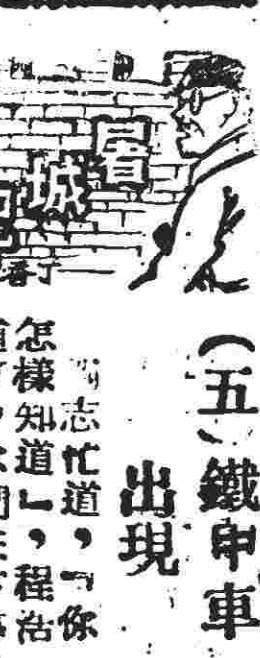 屠城
（五）鐵甲車
出現
志忙道，「你
怎樣知道」，程浩